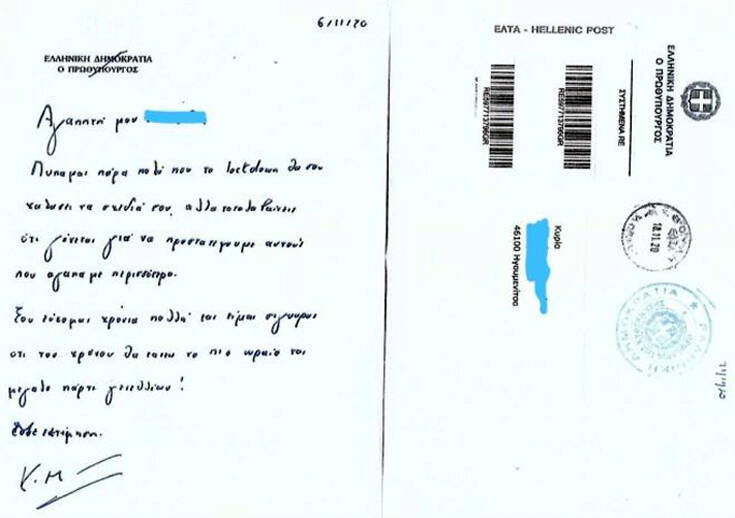 6/11/20
ΕΛΛΗΝΙΚΗ ΔΗΜΟΚΡΑΤΙΑ
Ο ΠΡΩΘΥΠΟΥΡΓΟΣ
Αγαπητή μου
Λυπάμαι πάρα πολύ που το lockdown θα σου
χαλάσει τα σχέδιά σου, αλλά καταλαβαίνεις
ότι γίνεται για να προστατέψουμε αυτούς
που αγαπάμε περισσότερο.
Σου εύχομαι χρόνια πολλά και είμαι σίγουρος
ότι του χρόνου θα κάνεις το πιο ωραίο και
μεγάλο πάρτι γενεθλίων!
Με εκτίμηση.
Κ.Μ
ΕΛΤΑ - HELLENIC POST
ΕΛΛΗΝΙΚΗ ΔΗΜΟΚΡΑΤΙΑ
Ο ΠΡΩΘΥΠΟΥΡΓΟΣ
ΣΥΣΤΗΜΕΝΑ RE
RE597713796GR
RE597713796GR
Κυρία
46100 Ηγουμενίτσα
18.11.20